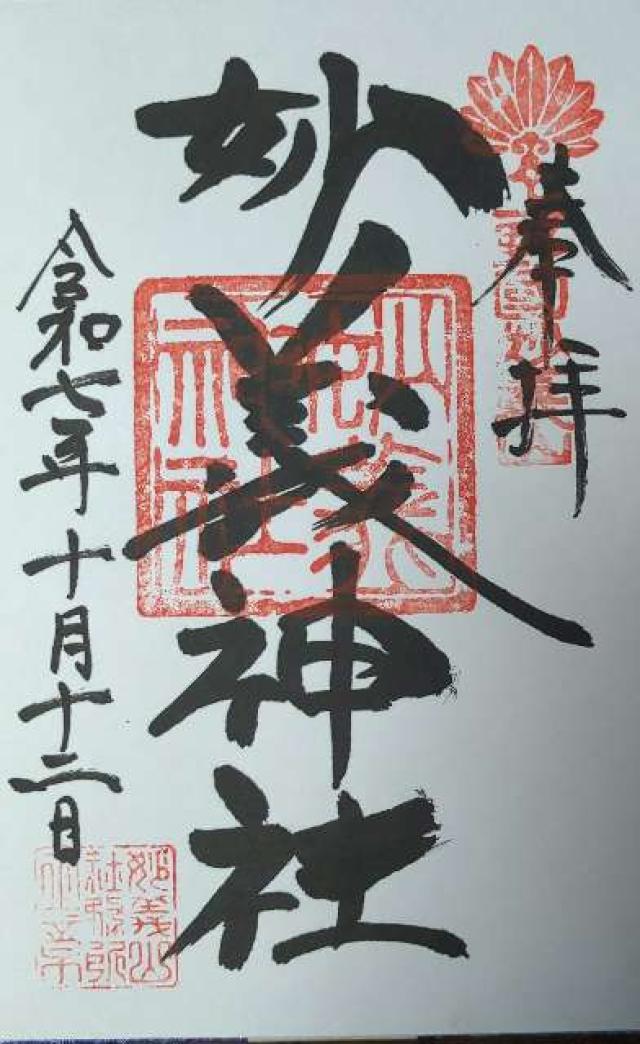 奉拝
妙義神社
令和七年十月十二日
妙義神社